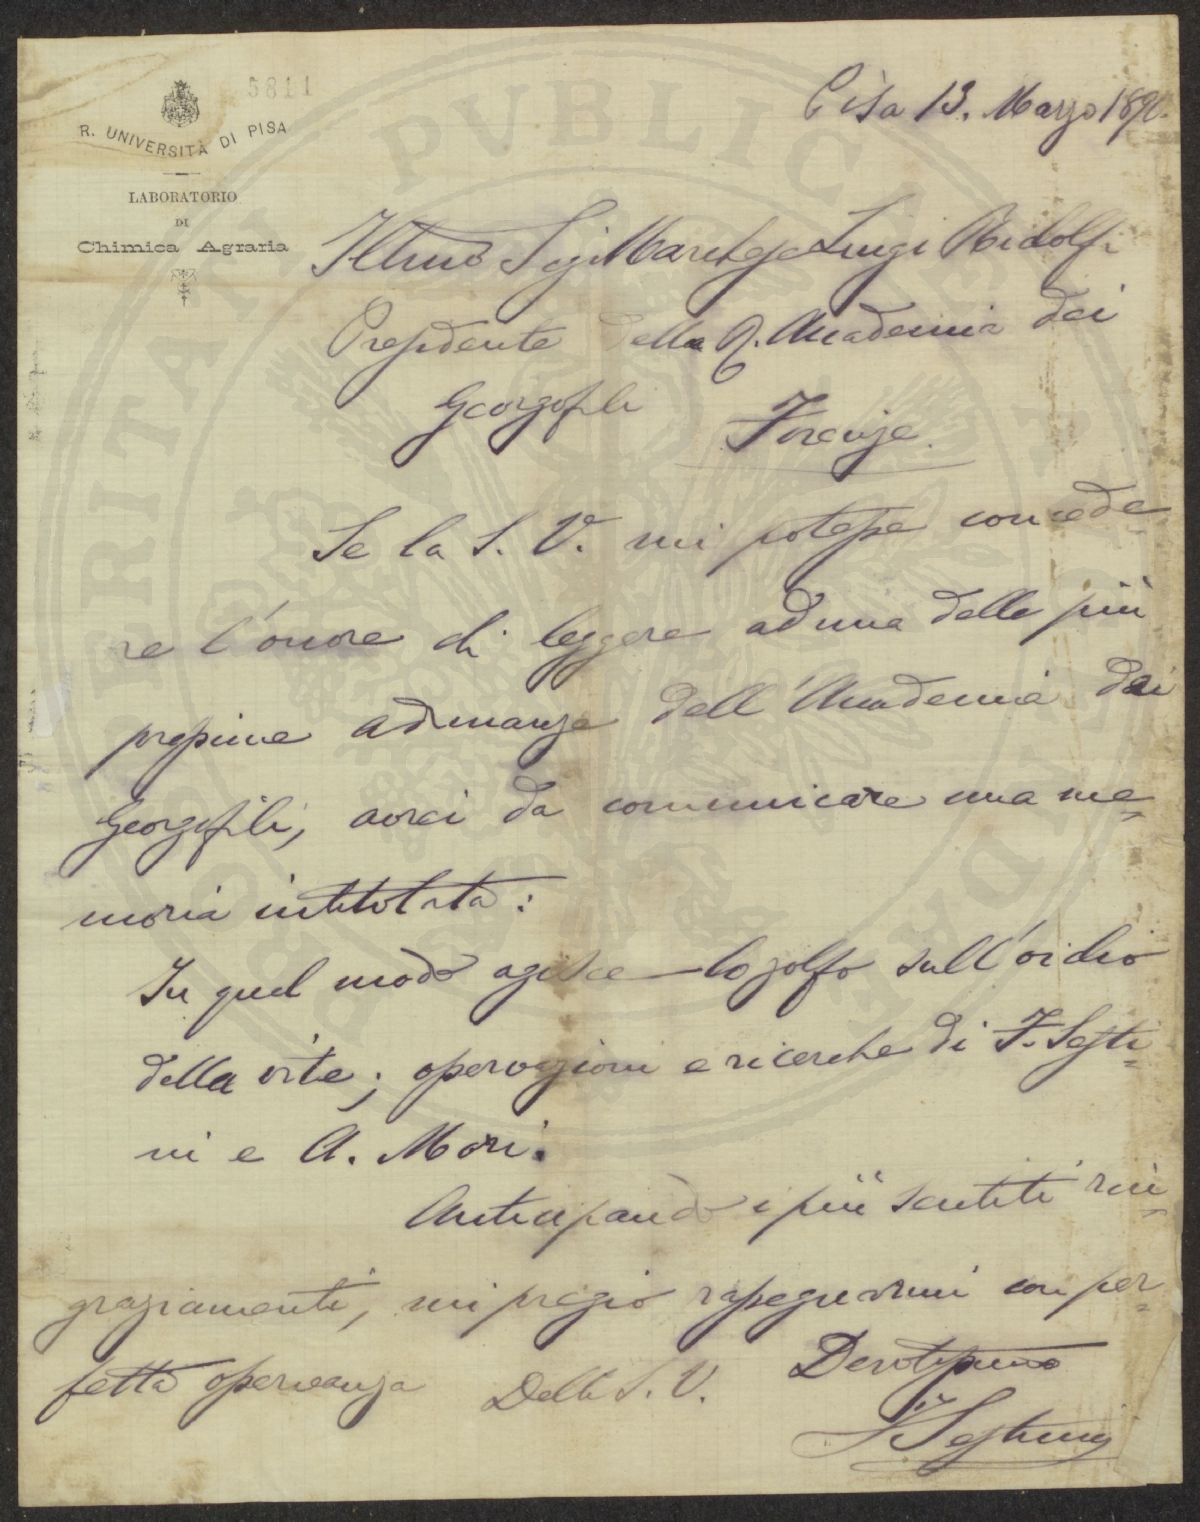 5811
R. UNIVERSITÀ DI PISA
LABORATORIO
DI
Chimica Agraria
Pisa 13. Marzo 1890.
Illmo Sig. Marchese Luigi Ridolfi
Presidente della R. Accademia dei
Georgofili
Firenze.
Se la S. V. mi potesse concede
re l'onore di leggere ad una delle più
prossime adunanze dell'Accademia dei
Georgofili, avrei da comunicare una me=
moria intitolata:
In qual modo agisce lo zolfo sull'oidio
della vite; osservazioni e ricerche di F. Sesti=
ni e A. Mori.
Anticipando i più sentiti rin=
graziamenti, mi pregio rassegnarmi con per=
fetta osservanza Della S. V. Devotissimo
F Sestini